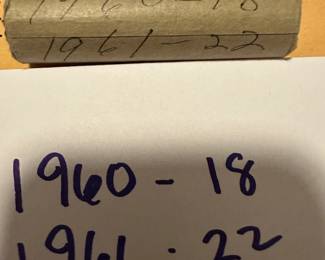 1960-18
1961-22
1960 - 18
1961 - 22